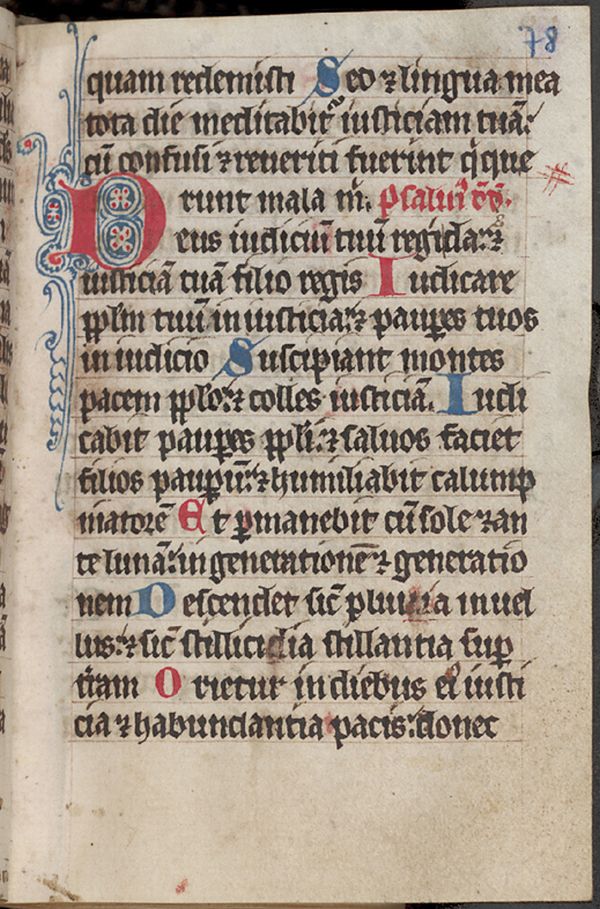 78
quam redemisti Sed ⁊ lingua mea
tota die meditabit᷑ iusticiam tuā:
cū confusi ⁊ reueriti fuerint q̇ que
runt mala m̄. Psalm᷒
Deus iudiciū tuū regi da: ⁊
iusticiā tuā filio regis Iudicare
pplm tuū in iusticia: ⁊ paup̲es tuos
in iudicio Suscipiant montes
pacem pplo: ⁊ colles iusticiā. Iudi
cabit paup̲es ppli: ⁊ saluos faciet
filios paup̲ū: ⁊ humiliabit calump
niatorē Et p̲manebit cū sole ⁊ an
te lunā: in generationē ⁊ generatio
nem Descendet sic̄ pluuia in uel
lus: ⁊ sic̄ stillicidia stillantia sup̲
t̄ram Orietur in diebus ei᷒ iusti
cia ⁊ habundantia pacis: donec